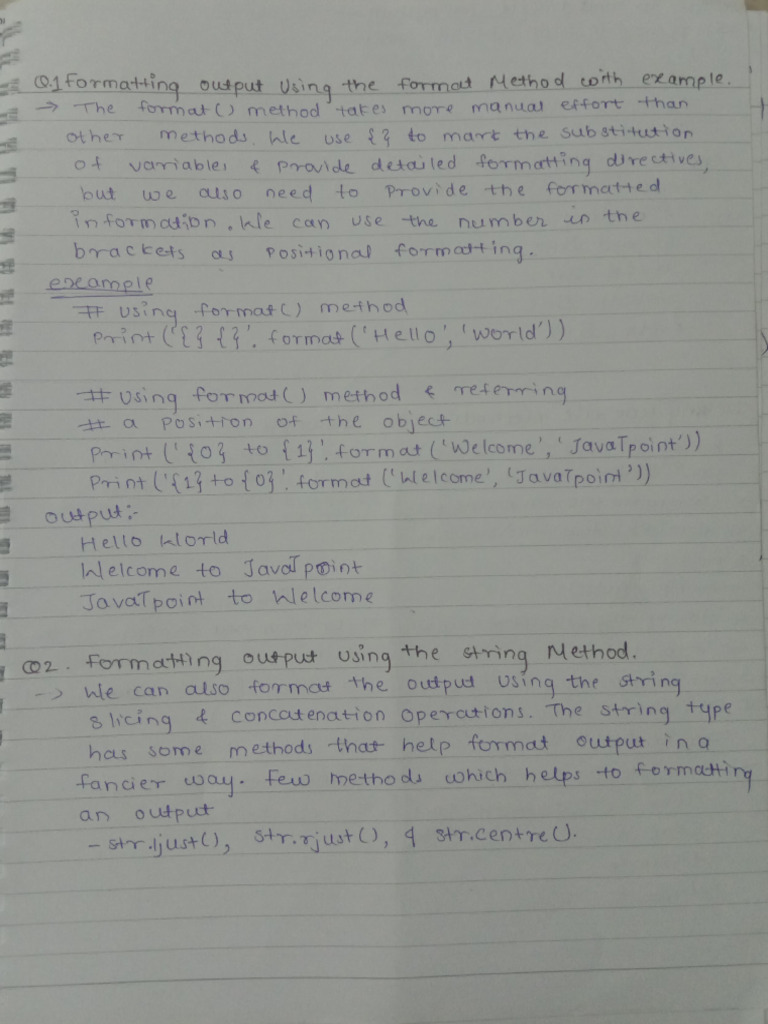 Q.1 Formatting output Using the format Method with example.
→ The format() method takes more manual effort than
other methods. We use {} to mark the substitution
of variables & provide detailed formatting directives,
but we also need to provide the formatted
information. We can use the number in the
brackets as positional formatting.
example
# using format() method
Print('{} {}'. format('Hello', 'World'))
# using format() method & referring
# a position of the object
Print('{0} to {1}'. format('Welcome', 'JavaTpoint'))
Print('{1} to {0}'. format('Welcome', 'JavaTpoint'))
output:-
Hello World
Welcome to JavaTpoint
JavaTpoint to Welcome
Q2. Formatting output using the string Method.
-> We can also format the output using the string
slicing & concatenation operations. The string type
has some methods that help format output in a
fancier way. few methods which helps to formatting
an output
- str.ljust(), str.rjust(), & str.centre().